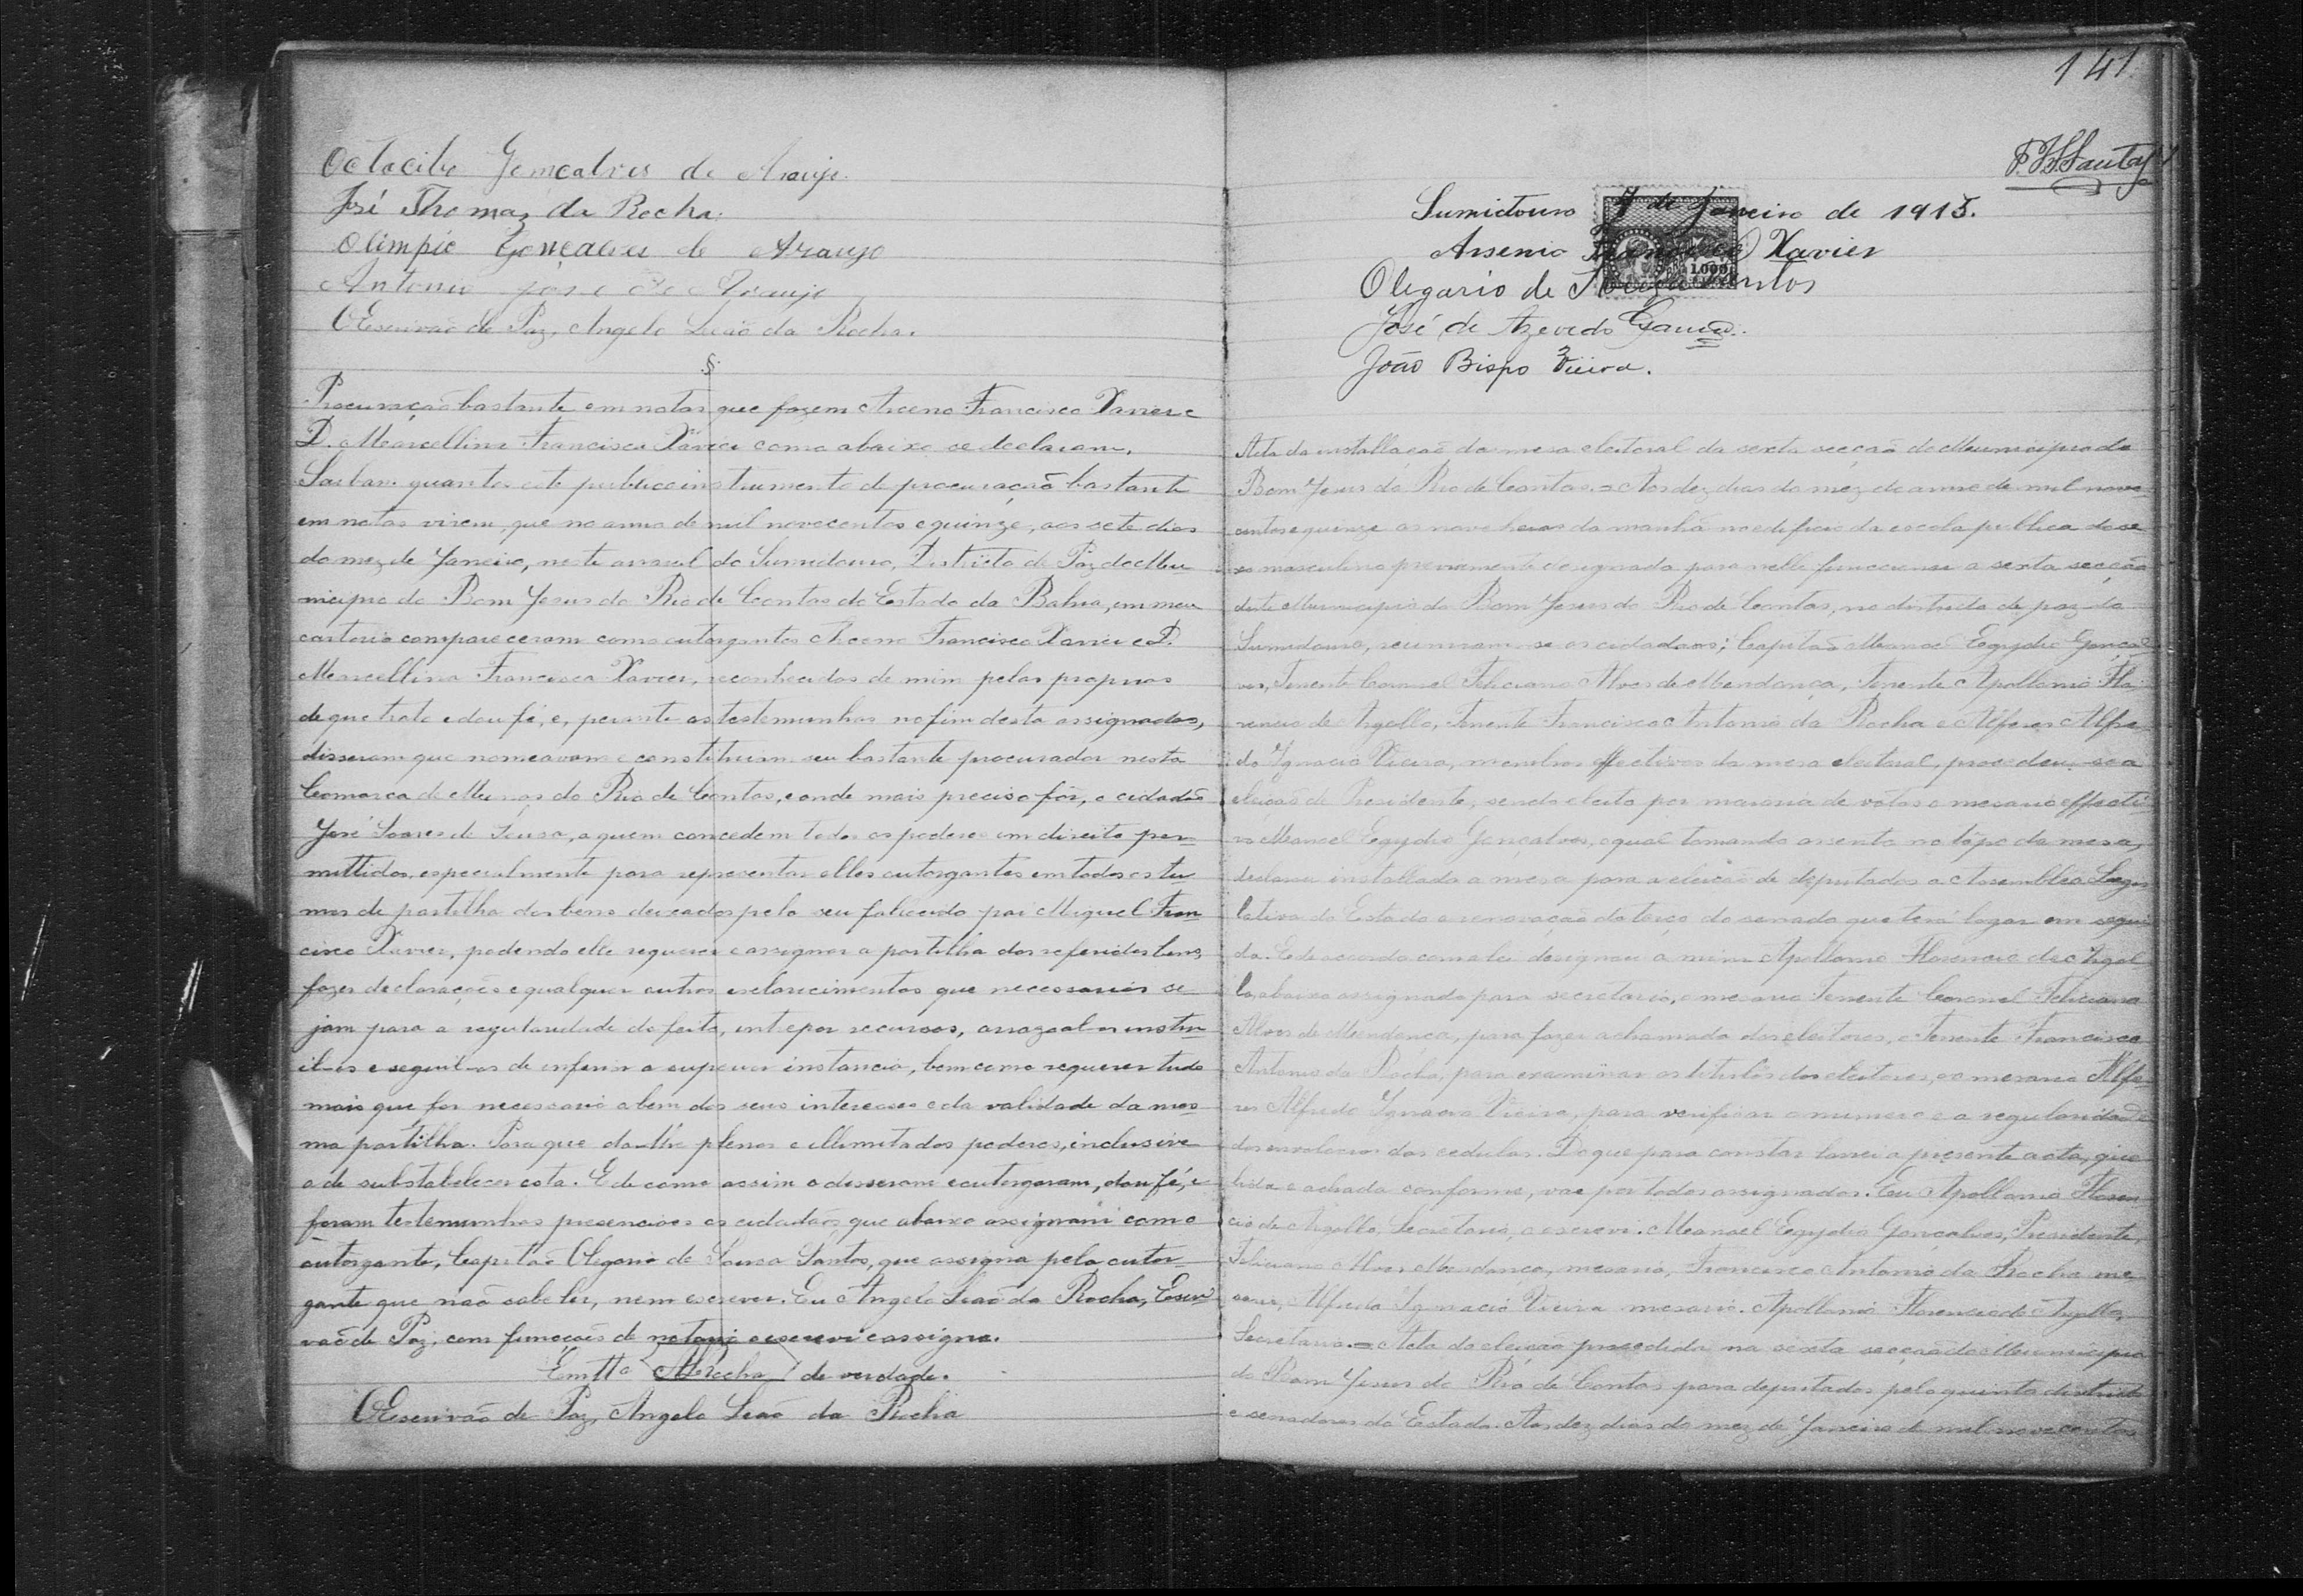 Octacilio Gonçalves de Araujo.
José Thomaz da Rocha.
Olimpio Gonçalves de Araujo
Antonio José de Araujo
O Escrivão de Paz, Angelo Leão da Rocha.
§
Procuração bastante em notas que fazem Arceno Francisco Xavier e
D. Marcellina Francisca Xavier como abaixo se declaram.
Saibam quantos este publico instrumento de procuração bastante
em notas virem, que no anno de mil novecentos e quinze, aos sete dias
do mez de Janeiro, neste arraial do Sumidouro, Districto de Paz do Mu
nicipio do Bom Jesus do Rio de Contas do Estado da Bahia, em meu
cartorio compareceram como outorgantes Arceno Francisco Xavier e D.
Marcellina Francisca Xavier, reconhecidos de mim pelos proprios
de que trato e dou fé, e, perante as testemunhas no fim desta assignadas,
disseram que nomeavam e constituiam seu bastante procurador nesta
Comarca de Minas do Rio de Contas, e onde mais preciso fôr, o cidadão
José Soares de Sousa, a quem concedem todos os poderes em direito per=
mittidos, especialmente para representar elles outorgantes em todos os ter
mos de partilha dos bens deixados pelo seu fallecido pai Miguel Fran
cisco Xavier, podendo elle requerer e assignar a partilha dos referidos bens,
fazer declarações e qualquer outros esclarecimentos que necessarios se
jam para a regularidade do feito, intepor recursos, arrazoal-os instru
il-os e seguil-os de inferior a superior instancia, bem como requerer tudo
mais que for necessario a bem dos seus interesses e da validade da mes
ma partilha. Para que da-lhe plenos e illimitados poderes, inclusive
o de substabelecer esta. E de como assim o disseram e outorgaram, dou fé, e
foram testemunhas presenciaes os cidadãos que abaixo assignam com o
outorgante, Capitão Olegario de Sousa Santos, que assigna pela outor=
gante que não sabe ler, nem escrever. Eu Angelo Leão da Rocha, Escri
vão de Paz, com funcções de notario o escrevi e assigno.
Em tto ALRocha de verdade.
O Escrivão de Paz, Angelo Leão da Rocha
141
Sumidouro 7 de Janeiro de 1915.
Arsenio Francisco Xavier
1.000
Olegario de Souza Santos
José de Azevedo
João Bispo Vieira.
Acta da installação da mesa eleitoral da sexta secção do Municipio do
Bom Jesus do Rio de Contas. = Aos dez dias do mez do anno de mil nove=
centos e quinze as nove horas da manhã no edificio da escola publica do se
xo masculino previamente designado para nelle funccionar a sexta secção
deste Municipio do Bom Jesus do Rio de Contas, no districto de paz do
Sumidouro, reuniram-se os cidadãos; Capitão Manoel Egydio Gonçal
ves, Tenente Coronel Feliciano Alves de Mendonça, Tenente Apollonio Flo
rencio de Argollo, Tenente Francisco Antonio da Rocha e Alferes Alfre
do Ignacio Vieira, membros effectivos da mesa eleitoral, procedeu-se a
eleição de Presidente, sendo eleito por maioria de votos o mesario effecti
vo Manoel Egydio Gonçalves, o qual tomando assento no tôpo da mesa,
declarou installada a mesa para a eleição de deputados a Assemblea Legis
lativa do Estado e renovação do terço do senado que terá logar em segui
da. E de accordo com a lei designou a mim Apollonio Florencio de Argol
lo, abaixo assignado para secretario, o mesario Tenente Coronel Feliciano
Alves de Mendonça, para fazer a chamada dos eleitores, o Tenente Francisco
Antonio da Rocha, para examinar os titulos dos eleitores, e o mesario Alfe
res Alfredo Ignacio Vieira, para verificar o numero e a regularidade
dos envolucros das cedulas. Do que para constar lavrei a presente acta, que
lida e achada conforme, vae por todos assignados. Eu Apollonio Floren
cio de Argollo, Secretario, o escrevi. Manoel Egydio Gonçalves, Presidente,
Feliciano Alves Mendonça, mesario, Francisco Antonio da Rocha me
sario, Alfredo Ignacio Vieira mesario. Apollonio Florencio de Argollo,
Secretario. = Acta da eleição procedida na sexta secção do Municipio
do Bom Jesus do Rio de Contas para deputados pelo quinto districto
e senadores do Estado. Aos dez dias do mez de Janeiro de mil novecentos